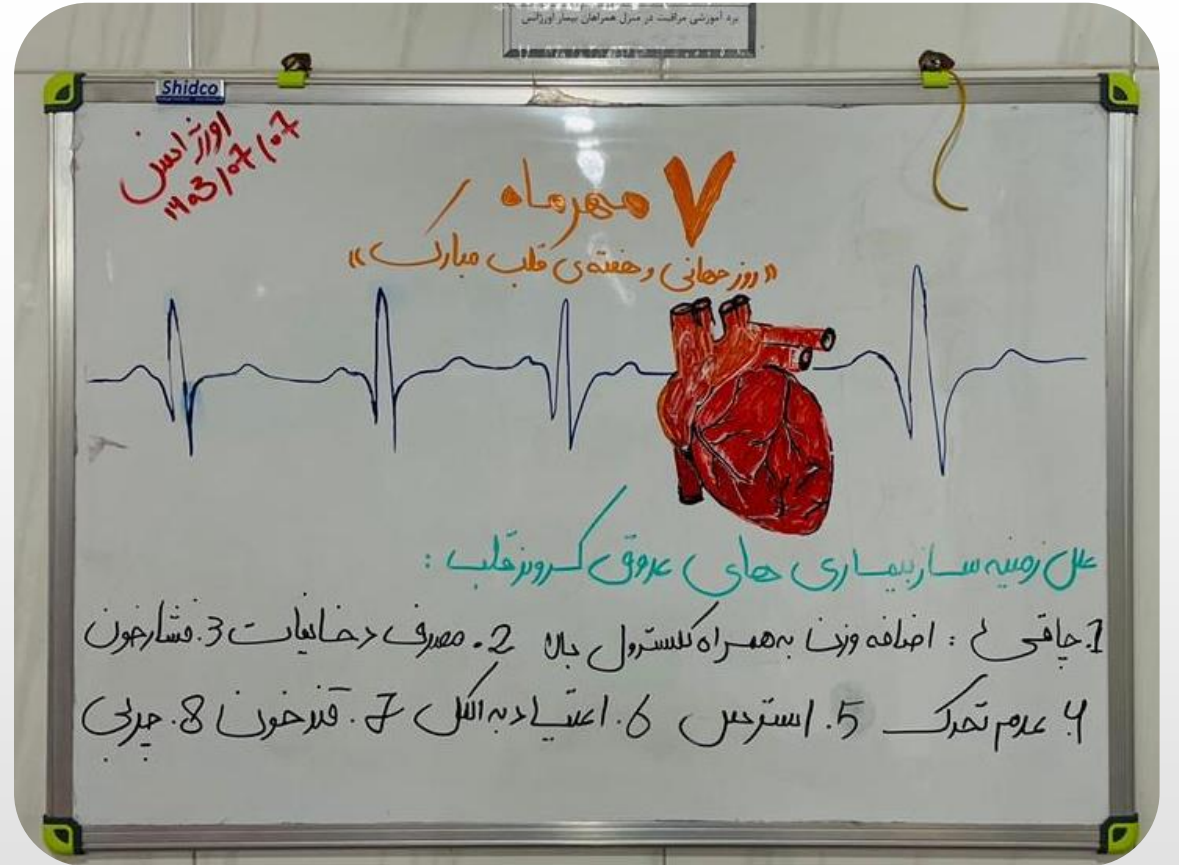 برد آموزشی مراقبت در منزل همراهان بیمار اورژانس
Shidco
اورژانس
1403/07/07
7 مهرماه
«روز جهانی و هفته‌ی قلب مبارک»
علل زمینه ساز بیماری های عروق کرونر قلب :
1. چاقی : اضافه وزن به همراه کلسترول بالا 2. مصرف دخانیات 3. فشارخون
۴. عدم تحرک 5. استرس 6. اعتیاد به الکل 7. قند خون 8. چربی